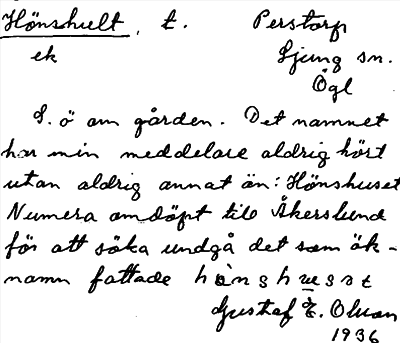 Hönshult, t. Perstorp
ek Ljung sn.
Ögl
S. ö om gården. Det namnet
har min meddelare aldrig hört
utan aldrig annat än: Hönshuset
Numera omdöpt till Åkerslund
för att söka undgå det som ök-
namn fattade
Gustaf E. Olson
1936